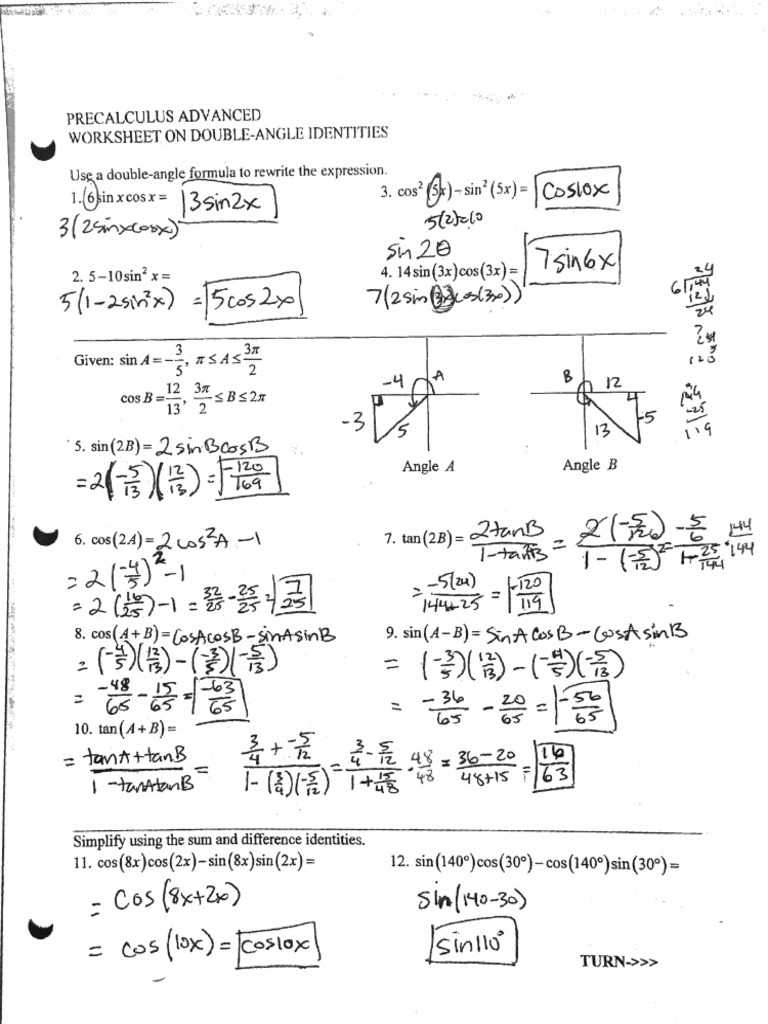 PRECALCULUS ADVANCED
WORKSHEET ON DOUBLE-ANGLE IDENTITIES
Use a double-angle formula to rewrite the expression.
1. 6 sin x cos x = 3sin2x
3(2sinxcosx)
3. cos² (5x) – sin² (5x) = cos10x
5(2)=10
2. 5 – 10 sin² x =
5(1 – 2sin²x) = 5cos2x
sin 2θ
4. 14 sin (3x) cos (3x) = 7sin6x
7(2sin(3x)cos(3x))
24
6)144
12↓
24
120
144
-25
119
Given: sin A = – 3/5, π ≤ A ≤ 3π/2
cos B = 12/13, 3π/2 ≤ B ≤ 2π
-4 A
-3 5
Angle A
B 12
13 -5
Angle B
5. sin (2B) = 2sinBcosB
= 2(-5/13)(12/13) = -120/169
6. cos (2A) = 2cos²A – 1
= 2(-4/5)² – 1
= 2(16/25) – 1 = 32/25 – 25/25 = 7/25
7. tan (2B) = 2tanB/1-tan²B = 2(-5/12)/1 – (-5/12)² = -5/6/1-25/144 · 144/144
= -5(24)/144-25 = -120/119
8. cos (A + B) = cosAcosB – sinAsinB
= (-4/5)(12/13) – (-3/5)(-5/13)
= -48/65 – 15/65 = -63/65
9. sin (A – B) = sinAcosB – cosAsinB
= (-3/5)(12/13) – (-4/5)(-5/13)
= -36/65 – 20/65 = -56/65
10. tan (A + B) =
= tanA+tanB/1 – tanAtanB = 3/4 + -5/12/1 – (3/4)(-5/12) = 3/4 – 5/12/1 + 15/48 · 48/48 = 36-20/48+15 = 16/63
Simplify using the sum and difference identities.
11. cos (8x) cos (2x) – sin (8x) sin (2x) =
= cos (8x+2x)
= cos (10x) = cos10x
12. sin (140°) cos (30°) – cos (140°) sin (30°) =
sin(140-30)
sin110°
TURN->>>